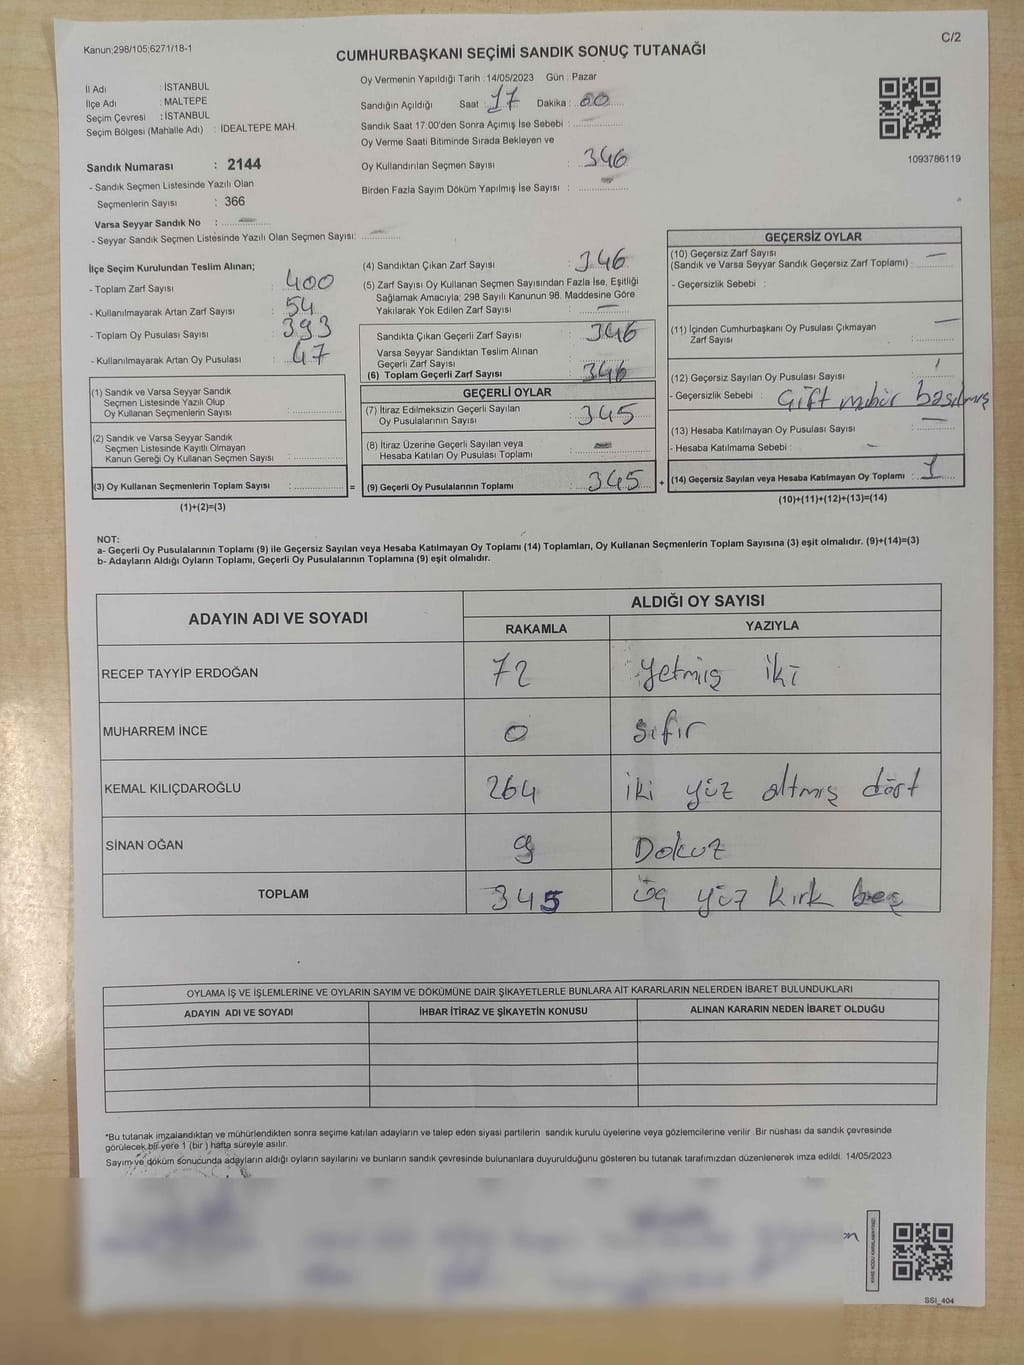 Kanun;298/105;6271/18-1
C/2
CUMHURBAŞKANI SEÇİMİ SANDIK SONUÇ TUTANAĞI
İl Adı : İSTANBUL
İlçe Adı : MALTEPE
Seçim Çevresi : İSTANBUL
Seçim Bölgesi (Mahalle Adı) : İDEALTEPE MAH.
Sandık Numarası : 2144
- Sandık Seçmen Listesinde Yazılı Olan
Seçmenlerin Sayısı : 366
Varsa Seyyar Sandık No : -
- Seyyar Sandık Seçmen Listesinde Yazılı Olan Seçmen Sayısı: -
Oy Vermenin Yapıldığı Tarih : 14/05/2023 Gün : Pazar
Sandığın Açıldığı Saat : 17 Dakika : 00
Sandık Saat 17:00'den Sonra Açımış İse Sebebi :
Oy Verme Saati Bitiminde Sırada Bekleyen ve
Oy Kullandırılan Seçmen Sayısı : 346
Birden Fazla Sayım Döküm Yapılmış İse Sayısı : -
1093786119
İlçe Seçim Kurulundan Teslim Alınan;
- Toplam Zarf Sayısı : 400
- Kullanılmayarak Artan Zarf Sayısı : 54
- Toplam Oy Pusulası Sayısı : 393
- Kullanılmayarak Artan Oy Pusulası : 47
(1) Sandık ve Varsa Seyyar Sandık
Seçmen Listesinde Yazılı Olup
Oy Kullanan Seçmenlerin Sayısı :
(2) Sandık ve Varsa Seyyar Sandık
Seçmen Listesinde Kayıtlı Olmayan
Kanun Gereği Oy Kullanan Seçmen Sayısı :
(3) Oy Kullanan Seçmenlerin Toplam Sayısı : =
(1)+(2)=(3)
(4) Sandıktan Çıkan Zarf Sayısı : 346
(5) Zarf Sayısı Oy Kullanan Seçmen Sayısından Fazla İse, Eşitliği
Sağlamak Amacıyla; 298 Sayılı Kanunun 98. Maddesine Göre
Yakılarak Yok Edilen Zarf Sayısı : -
Sandıkta Çıkan Geçerli Zarf Sayısı : 346
Varsa Seyyar Sandıktan Teslim Alınan
Geçerli Zarf Sayısı :
(6) Toplam Geçerli Zarf Sayısı : 346
GEÇERLİ OYLAR
(7) İtiraz Edilmeksizin Geçerli Sayılan
Oy Pusulalarının Sayısı : 345
(8) İtiraz Üzerine Geçerli Sayılan veya
Hesaba Katılan Oy Pusulası Toplamı : -
(9) Geçerli Oy Pusulalarının Toplamı : 345 +
GEÇERSİZ OYLAR
(10) Geçersiz Zarf Sayısı
(Sandık ve Varsa Seyyar Sandık Geçersiz Zarf Toplamı) : -
- Geçersizlik Sebebi :
(11) İçinden Cumhurbaşkanı Oy Pusulası Çıkmayan
Zarf Sayısı : -
(12) Geçersiz Sayılan Oy Pusulası Sayısı : 1
- Geçersizlik Sebebi : Çift mühür basılmış
(13) Hesaba Katılmayan Oy Pusulası Sayısı : -
- Hesaba Katılmama Sebebi : -
(14) Geçersiz Sayılan veya Hesaba Katılmayan Oy Toplamı : 1
(10)+(11)+(12)+(13)=(14)
NOT:
a- Geçerli Oy Pusulalarının Toplamı (9) ile Geçersiz Sayılan veya Hesaba Katılmayan Oy Toplamı (14) Toplamları, Oy Kullanan Seçmenlerin Toplam Sayısına (3) eşit olmalıdır. (9)+(14)=(3)
b- Adayların Aldığı Oyların Toplamı, Geçerli Oy Pusulalarının Toplamına (9) eşit olmalıdır.
ADAYIN ADI VE SOYADI
ALDIĞI OY SAYISI
RAKAMLA YAZIYLA
RECEP TAYYİP ERDOĞAN 72 Yetmiş iki
MUHARREM İNCE 0 sıfır
KEMAL KILIÇDAROĞLU 264 iki yüz altmış dört
SİNAN OĞAN 9 Dokuz
TOPLAM 345 üç yüz kırk beş
OYLAMA İŞ VE İŞLEMLERİNE VE OYLARIN SAYIM VE DÖKÜMÜNE DAİR ŞİKAYETLERLE BUNLARA AİT KARARLARIN NELERDEN İBARET BULUNDUKLARI
ADAYIN ADI VE SOYADI İHBAR İTİRAZ VE ŞİKAYETİN KONUSU ALINAN KARARIN NEDEN İBARET OLDUĞU
*Bu tutanak imzalandıktan ve mühürlendikten sonra seçime katılan adayların ve talep eden siyasi partilerin sandık kurulu üyelerine veya gözlemcilerine verilir .Bir nüshası da sandık çevresinde
görülecek bir yere 1 (bir ) hafta süreyle asılır.
Sayım ve döküm sonucunda adayların aldığı oyların sayılarını ve bunların sandık çevresinde bulunanlara duyurulduğunu gösteren bu tutanak tarafımızdan düzenlenerek imza edildi. 14/05/2023
SSI_404